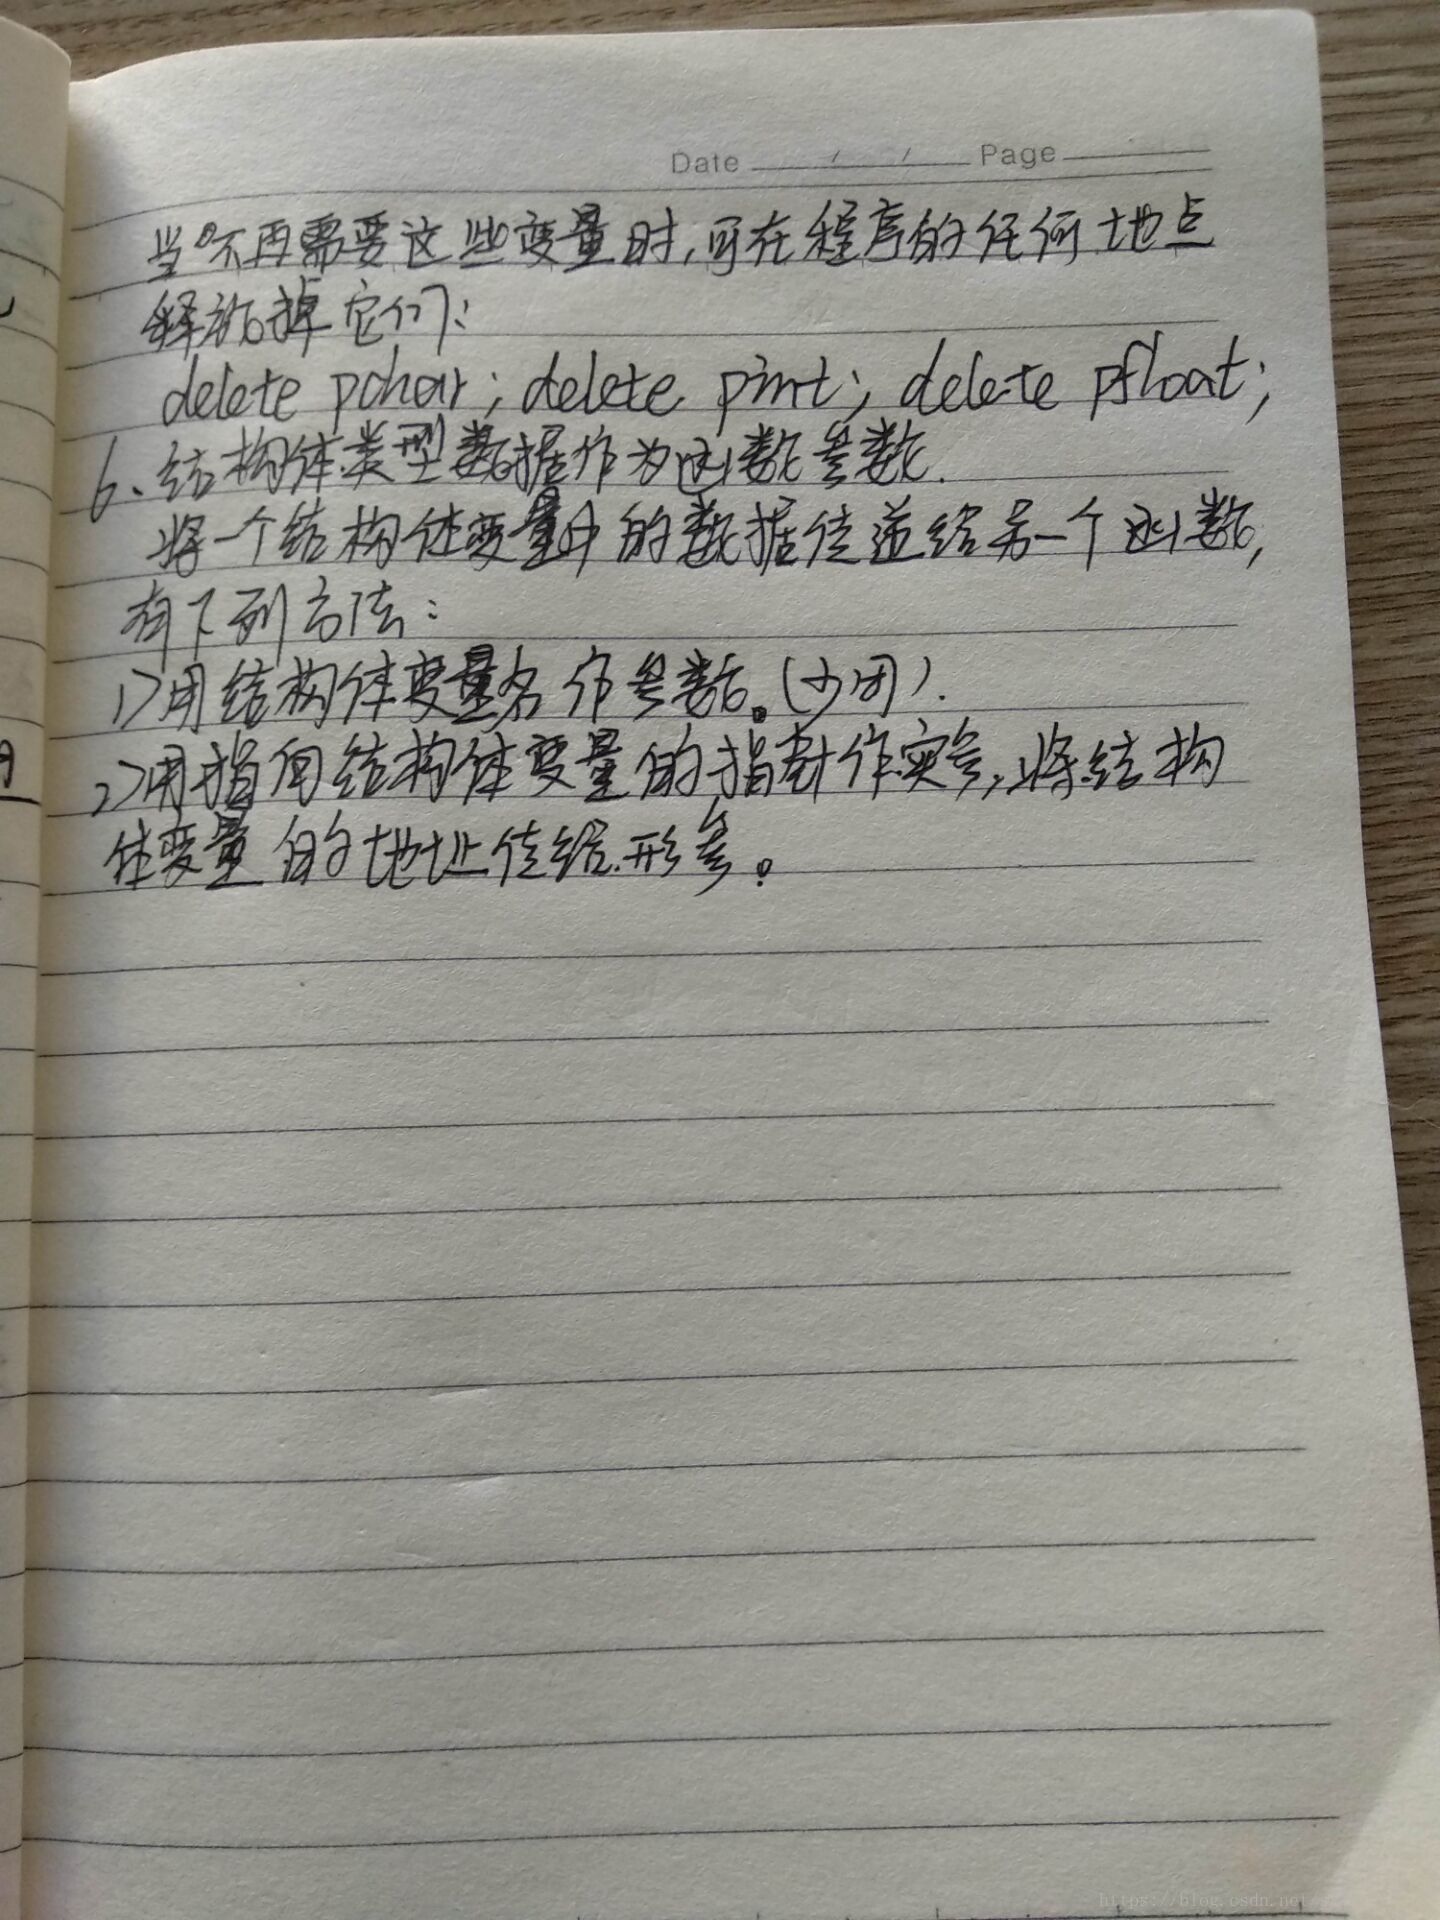 Date / / Page
当不再需要这些变量时,可在程序的任何地点
释放掉它们:
delete pchar; delete pint; delete pfloat;
6、结构体类型数据作为函数参数.
将一个结构体变量中的数据传递给另一个函数,
有下列方法:
1>用结构体变量名作参数。(少用).
2>用指向结构体变量的指针作实参,将结构
体变量的地址传给形参。
https://blog.csdn.net